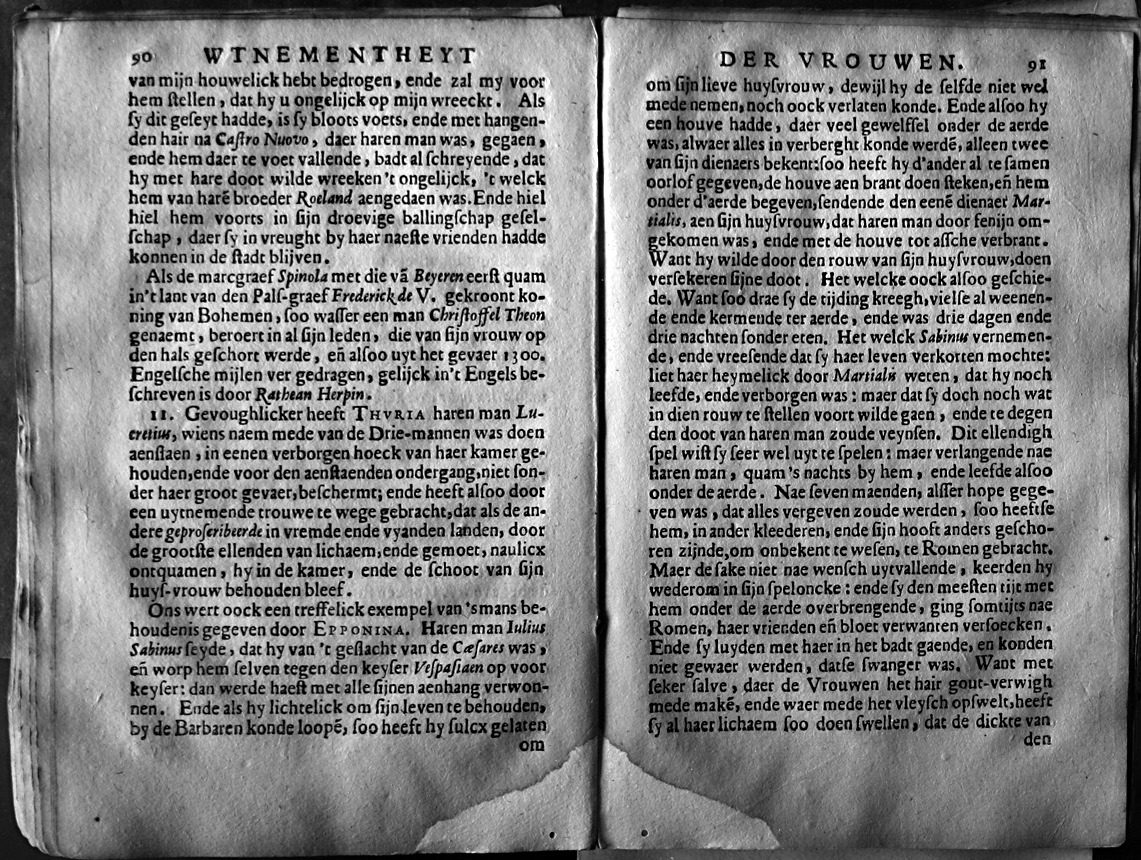 90 WTNEMENTHEYT
van mijn houwelick hebt bedrogen, ende zal my voor
hem ſtellen, dat hy u ongelijck op mijn wreeckt. Als
ſy dit geſeyt hadde, is ſy bloots voets, ende met hangen-
den hair na Caſtro Nuovo, daer haren man was, gegaen,
ende hem daer te voet vallende, badt al ſchreyende, dat
hy met hare doot wilde wreeken 't ongelijck, 't welck
hem van harē broeder Roeland aengedaen was. Ende hiel
hiel hem voorts in ſijn droevige ballingſchap geſel-
ſchap, daer ſy in vreught by haer naeſte vrienden hadde
konnen in de ſtadt blijven.
Als de marcgraef Spinola met die vā Beyeren eerſt quam
in't lant van den Palſ-graef Frederick de V. gekroont ko-
ning van Bohemen, ſoo waſſer een man Chriſtoffel Theon
genaemt, beroert in al ſijn leden, die van ſijn vrouw op
den hals geſchort werde, en̄ alſoo uyt het gevaer 1300.
Engelſche mijlen ver gedragen, gelijck in't Engels be-
ſchreven is door Rathean Herpin.
11. Gevoughlicker heeft THVRIA haren man Lu-
cretius, wiens naem mede van de Drie-mannen was doen
aenſlaen, in eenen verborgen hoeck van haer kamer ge-
houden, ende voor den aenſtaenden ondergang, niet ſon-
der haer groot gevaer, beſchermt; ende heeft alſoo door
een uytnemende trouwe te wege gebracht, dat als de an-
dere geproſcribeerde in vremde ende vyanden landen, door
de grootſte ellenden van lichaem, ende gemoet, naulicx
ontquamen, hy in de kamer, ende de ſchoot van ſijn
huyſ-vrouw behouden bleef.
Ons wert oock een treffelick exempel van 'smans be-
houdenis gegeven door EPPONINA. Haren man Iulius
Sabinus ſeyde, dat hy van 't geſlacht van de Cæſares was,
en̄ worp hem ſelven tegen den keyſer Veſpaſiaen op voor
keyſer: dan werde haeſt met alle ſijnen aenhang verwon-
nen. Ende als hy lichtelick om ſijn leven te behouden,
by de Barbaren konde loopē, ſoo heeft hy ſulcx gelaten
om
DER VROUWEN. 91
om ſijn lieve huyſvrouw, dewijl hy de ſelfde niet wel
mede nemen, noch oock verlaten konde. Ende alſoo hy
een houve hadde, daer veel gewelfſel onder de aerde
was, alwaer alles in verberght konde werdē, alleen twee
van ſijn dienaers bekent: ſoo heeft hy d'ander al te ſamen
oorlof gegeven, de houve aen brant doen ſteken, en̄ hem
onder d'aerde begeven, ſendende den eenē dienaer Mar-
tialis, aen ſijn huyſvrouw, dat haren man door fenijn om-
gekomen was, ende met de houve tot aſſche verbrant.
Want hy wilde door den rouw van ſijn huyſvrouw, doen
verſekeren ſijne doot. Het welcke oock alſoo geſchie-
de. Want ſoo drae ſy de tijding kreegh, vielſe al weenen-
de ende kermende ter aerde, ende was drie dagen ende
drie nachten ſonder eten. Het welck Sabinus vernemen-
de, ende vreeſende dat ſy haer leven verkorten mochte:
liet haer heymelick door Martialis weten, dat hy noch
leefde, ende verborgen was: maer dat ſy doch noch wat
in dien rouw te ſtellen voort wilde gaen, ende te degen
den doot van haren man zoude veynſen. Dit ellendigh
ſpel wiſt ſy ſeer wel uyt te ſpelen: maer verlangende nae
haren man, quam 's nachts by hem, ende leefde alſoo
onder de aerde. Nae ſeven maenden, alſſer hope gege-
ven was, dat alles vergeven zoude werden, ſoo heeftſe
hem, in ander kleederen, ende ſijn hooft anders geſcho-
ren zijnde, om onbekent te weſen, te Romen gebracht.
Maer de ſake niet nae wenſch uytvallende, keerden hy
wederom in ſijn ſpeloncke: ende ſy den meeſten tijt met
hem onder de aerde overbrengende, ging ſomtijts nae
Romen, haer vrienden en̄ bloet verwanten verſoecken.
Ende ſy luyden met haer in het badt gaende, en konden
niet gewaer werden, datſe ſwanger was. Want met
ſeker ſalve, daer de Vrouwen het hair gout-verwigh
mede makē, ende waer mede het vleyſch opſwelt, heeft
ſy al haer lichaem ſoo doen ſwellen, dat de dickte van
den